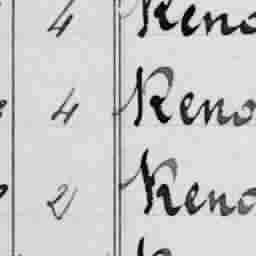 4 Reno
4 Reno
2 Reno